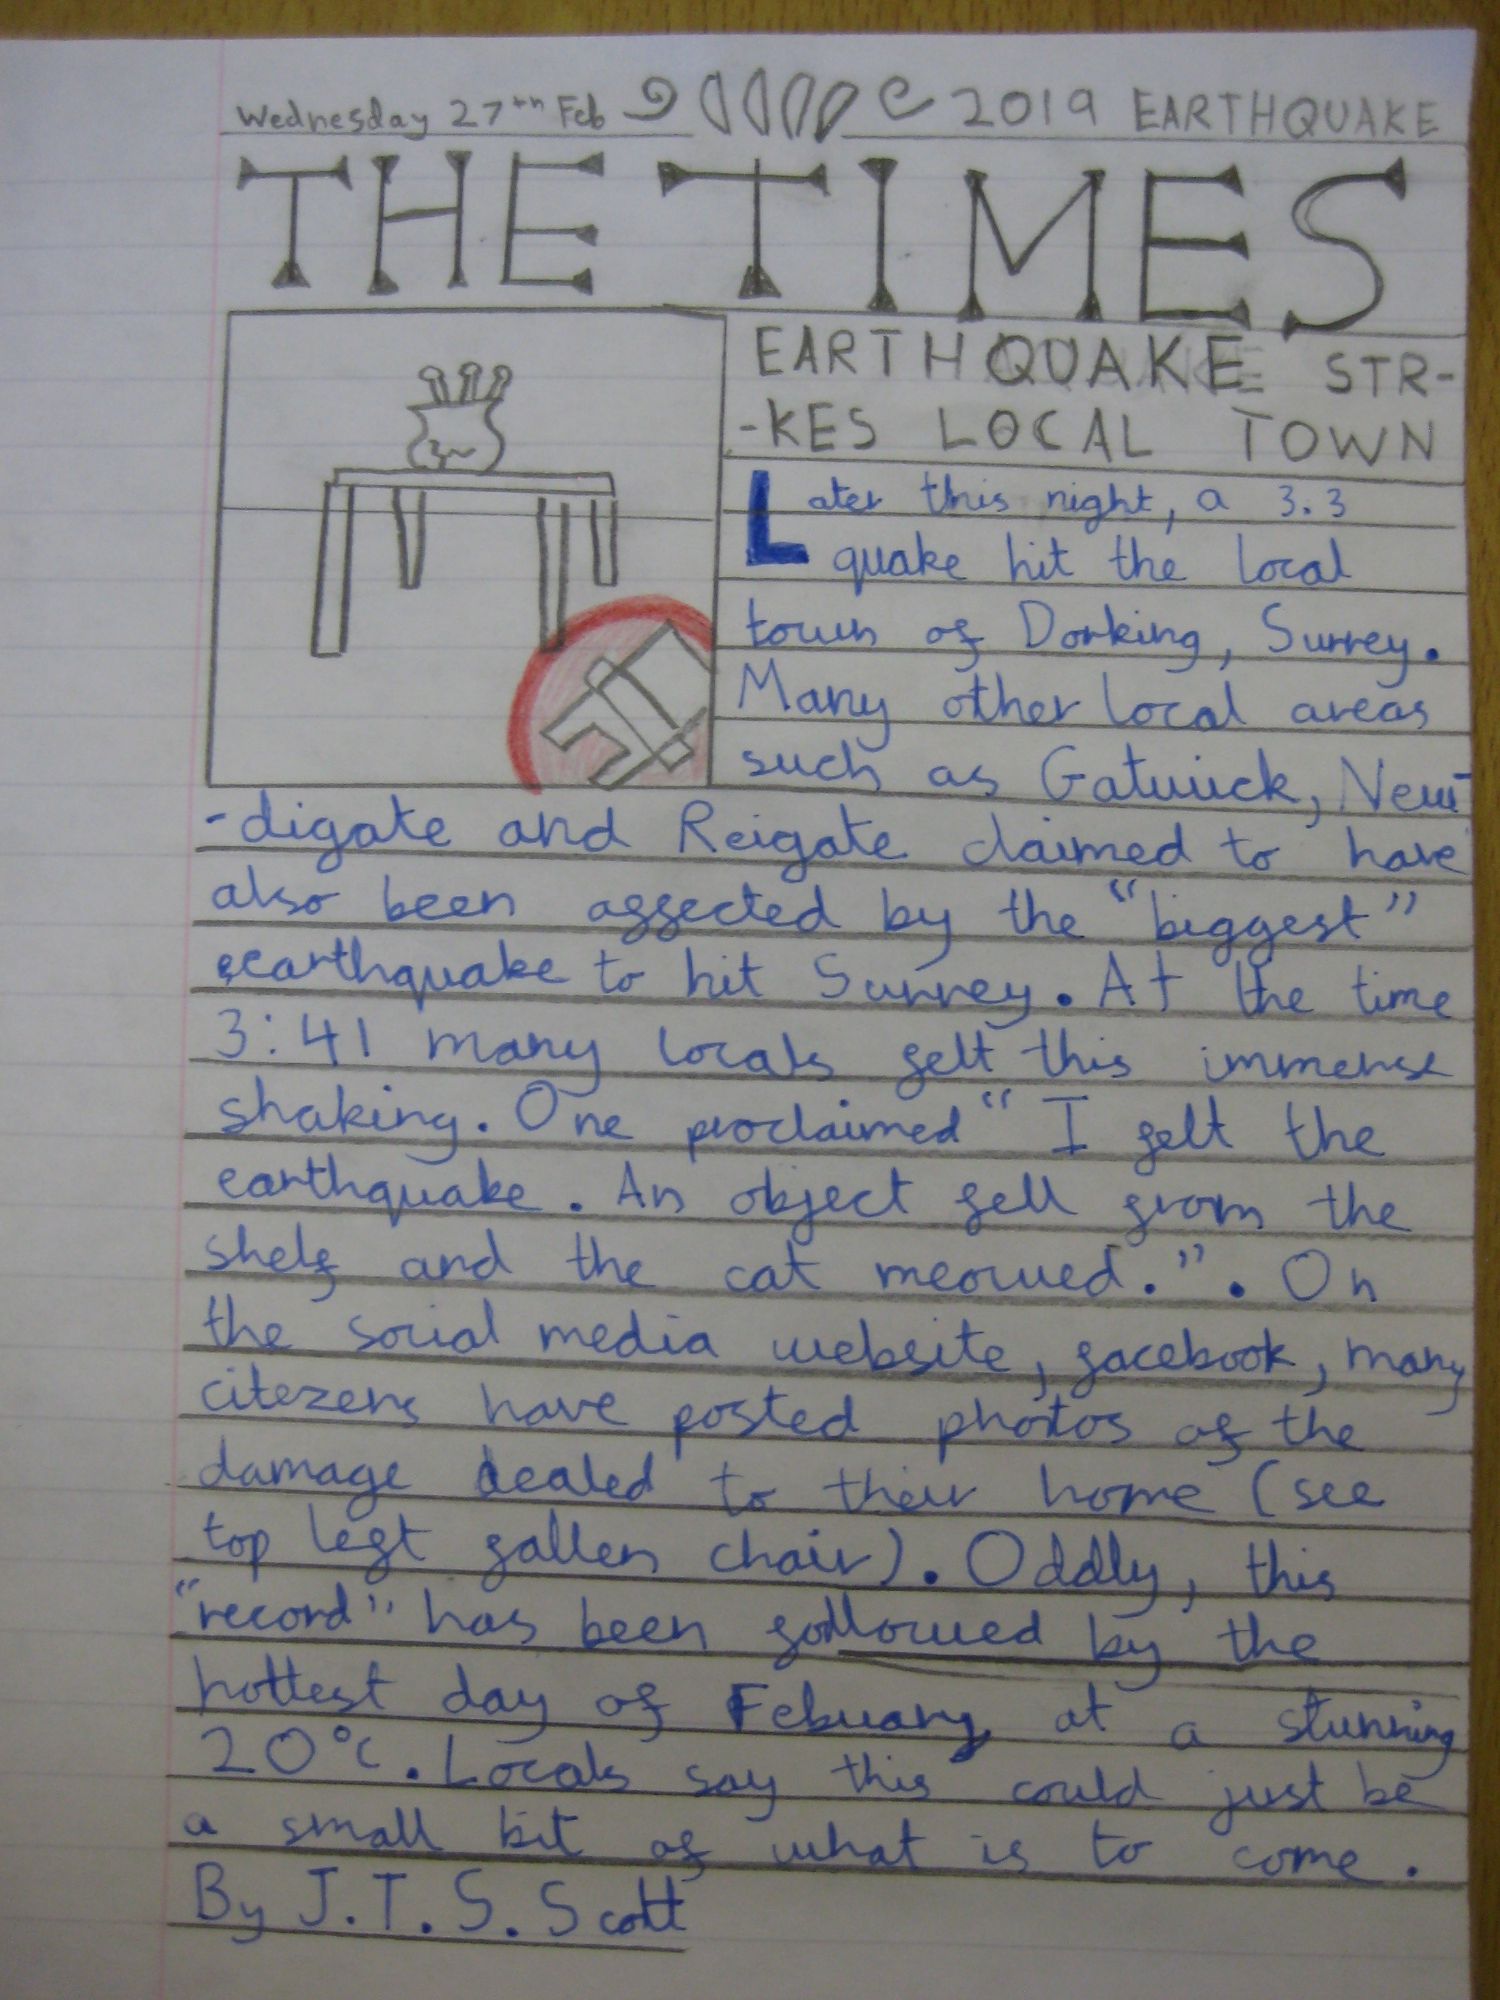 Wednesday 27th Feb 2019 EARTHQUAKE
THE TIMES
EARTHQUAKE STR-
-KES LOCAL TOWN
Later this night, a 3.3
quake hit the local
town of Dorking, Surrey.
Many other local areas
such as Gatwick, New-
-digate and Reigate claimed to have
also been affected by the "biggest"
earthquake to hit Surrey. At the time
3:41 many locals felt this immense
shaking. One proclaimed "I felt the
earthquake. An object fell from the
shelf and the cat meowed.". On
the social media website, facebook, many
citezens have posted photos of the
damage dealed to their home (see
top left fallen chair). Oddly, this
"record" has been follower by the
hottest day of Febuary at a stunning
20°c. Locals say this could just be
a small bit of what is to come.
By J.T.S. Scott